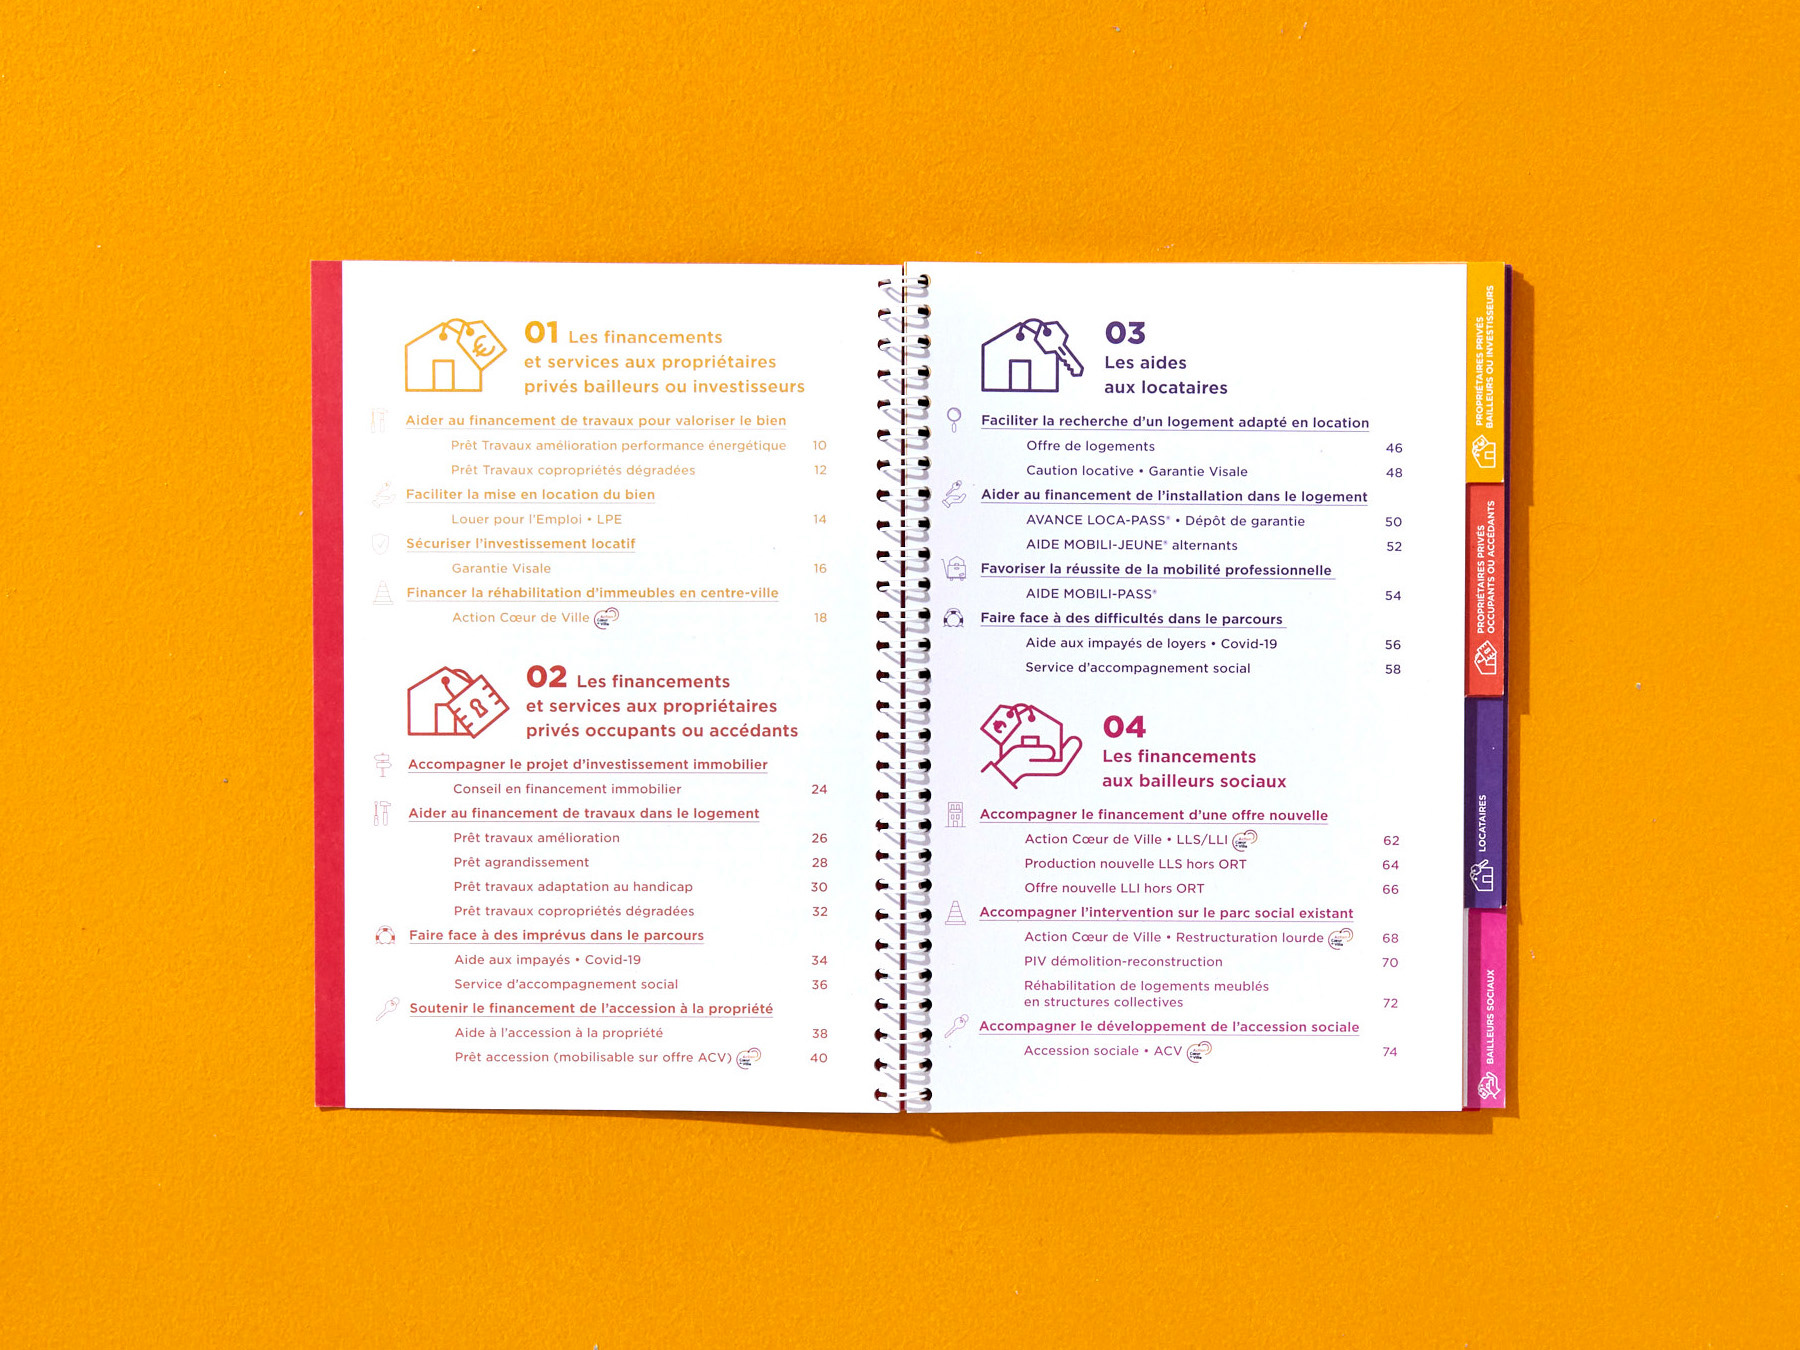 01 Les financements
et services aux propriétaires
privés bailleurs ou investisseurs
Aider au financement de travaux pour valoriser le bien
Prêt Travaux amélioration performance énergétique 10
Prêt Travaux copropriétés dégradées 12
Faciliter la mise en location du bien
Louer pour l'Emploi • LPE 14
Sécuriser l'investissement locatif
Garantie Visale 16
Financer la réhabilitation d'immeubles en centre-ville
Action Cœur de Ville 18
02 Les financements
et services aux propriétaires
privés occupants ou accédants
Accompagner le projet d'investissement immobilier
Conseil en financement immobilier 24
Aider au financement de travaux dans le logement
Prêt travaux amélioration 26
Prêt agrandissement 28
Prêt travaux adaptation au handicap 30
Prêt travaux copropriétés dégradées 32
Faire face à des imprévus dans le parcours
Aide aux impayés • Covid-19 34
Service d'accompagnement social 36
Soutenir le financement de l'accession à la propriété
Aide à l'accession à la propriété 38
Prêt accession (mobilisable sur offre ACV) 40
03
Les aides
aux locataires
Faciliter la recherche d'un logement adapté en location
Offre de logements 46
Caution locative • Garantie Visale 48
Aider au financement de l'installation dans le logement
AVANCE LOCA-PASS® • Dépôt de garantie 50
AIDE MOBILI-JEUNE® alternants 52
Favoriser la réussite de la mobilité professionnelle
AIDE MOBILI-PASS® 54
Faire face à des difficultés dans le parcours
Aide aux impayés de loyers • Covid-19 56
Service d'accompagnement social 58
04
Les financements
aux bailleurs sociaux
Accompagner le financement d'une offre nouvelle
Action Cœur de Ville • LLS/LLI 62
Production nouvelle LLS hors ORT 64
Offre nouvelle LLI hors ORT 66
Accompagner l'intervention sur le parc social existant
Action Cœur de Ville • Restructuration lourde 68
PIV démolition-reconstruction 70
Réhabilitation de logements meublés
en structures collectives 72
Accompagner le développement de l'accession sociale
Accession sociale • ACV 74
PROPRIÉTAIRES PRIVÉS
BAILLEURS OU INVESTISSEURS
PROPRIÉTAIRES PRIVÉS
OCCUPANTS OU ACCÉDANTS
LOCATAIRES
BAILLEURS SOCIAUX